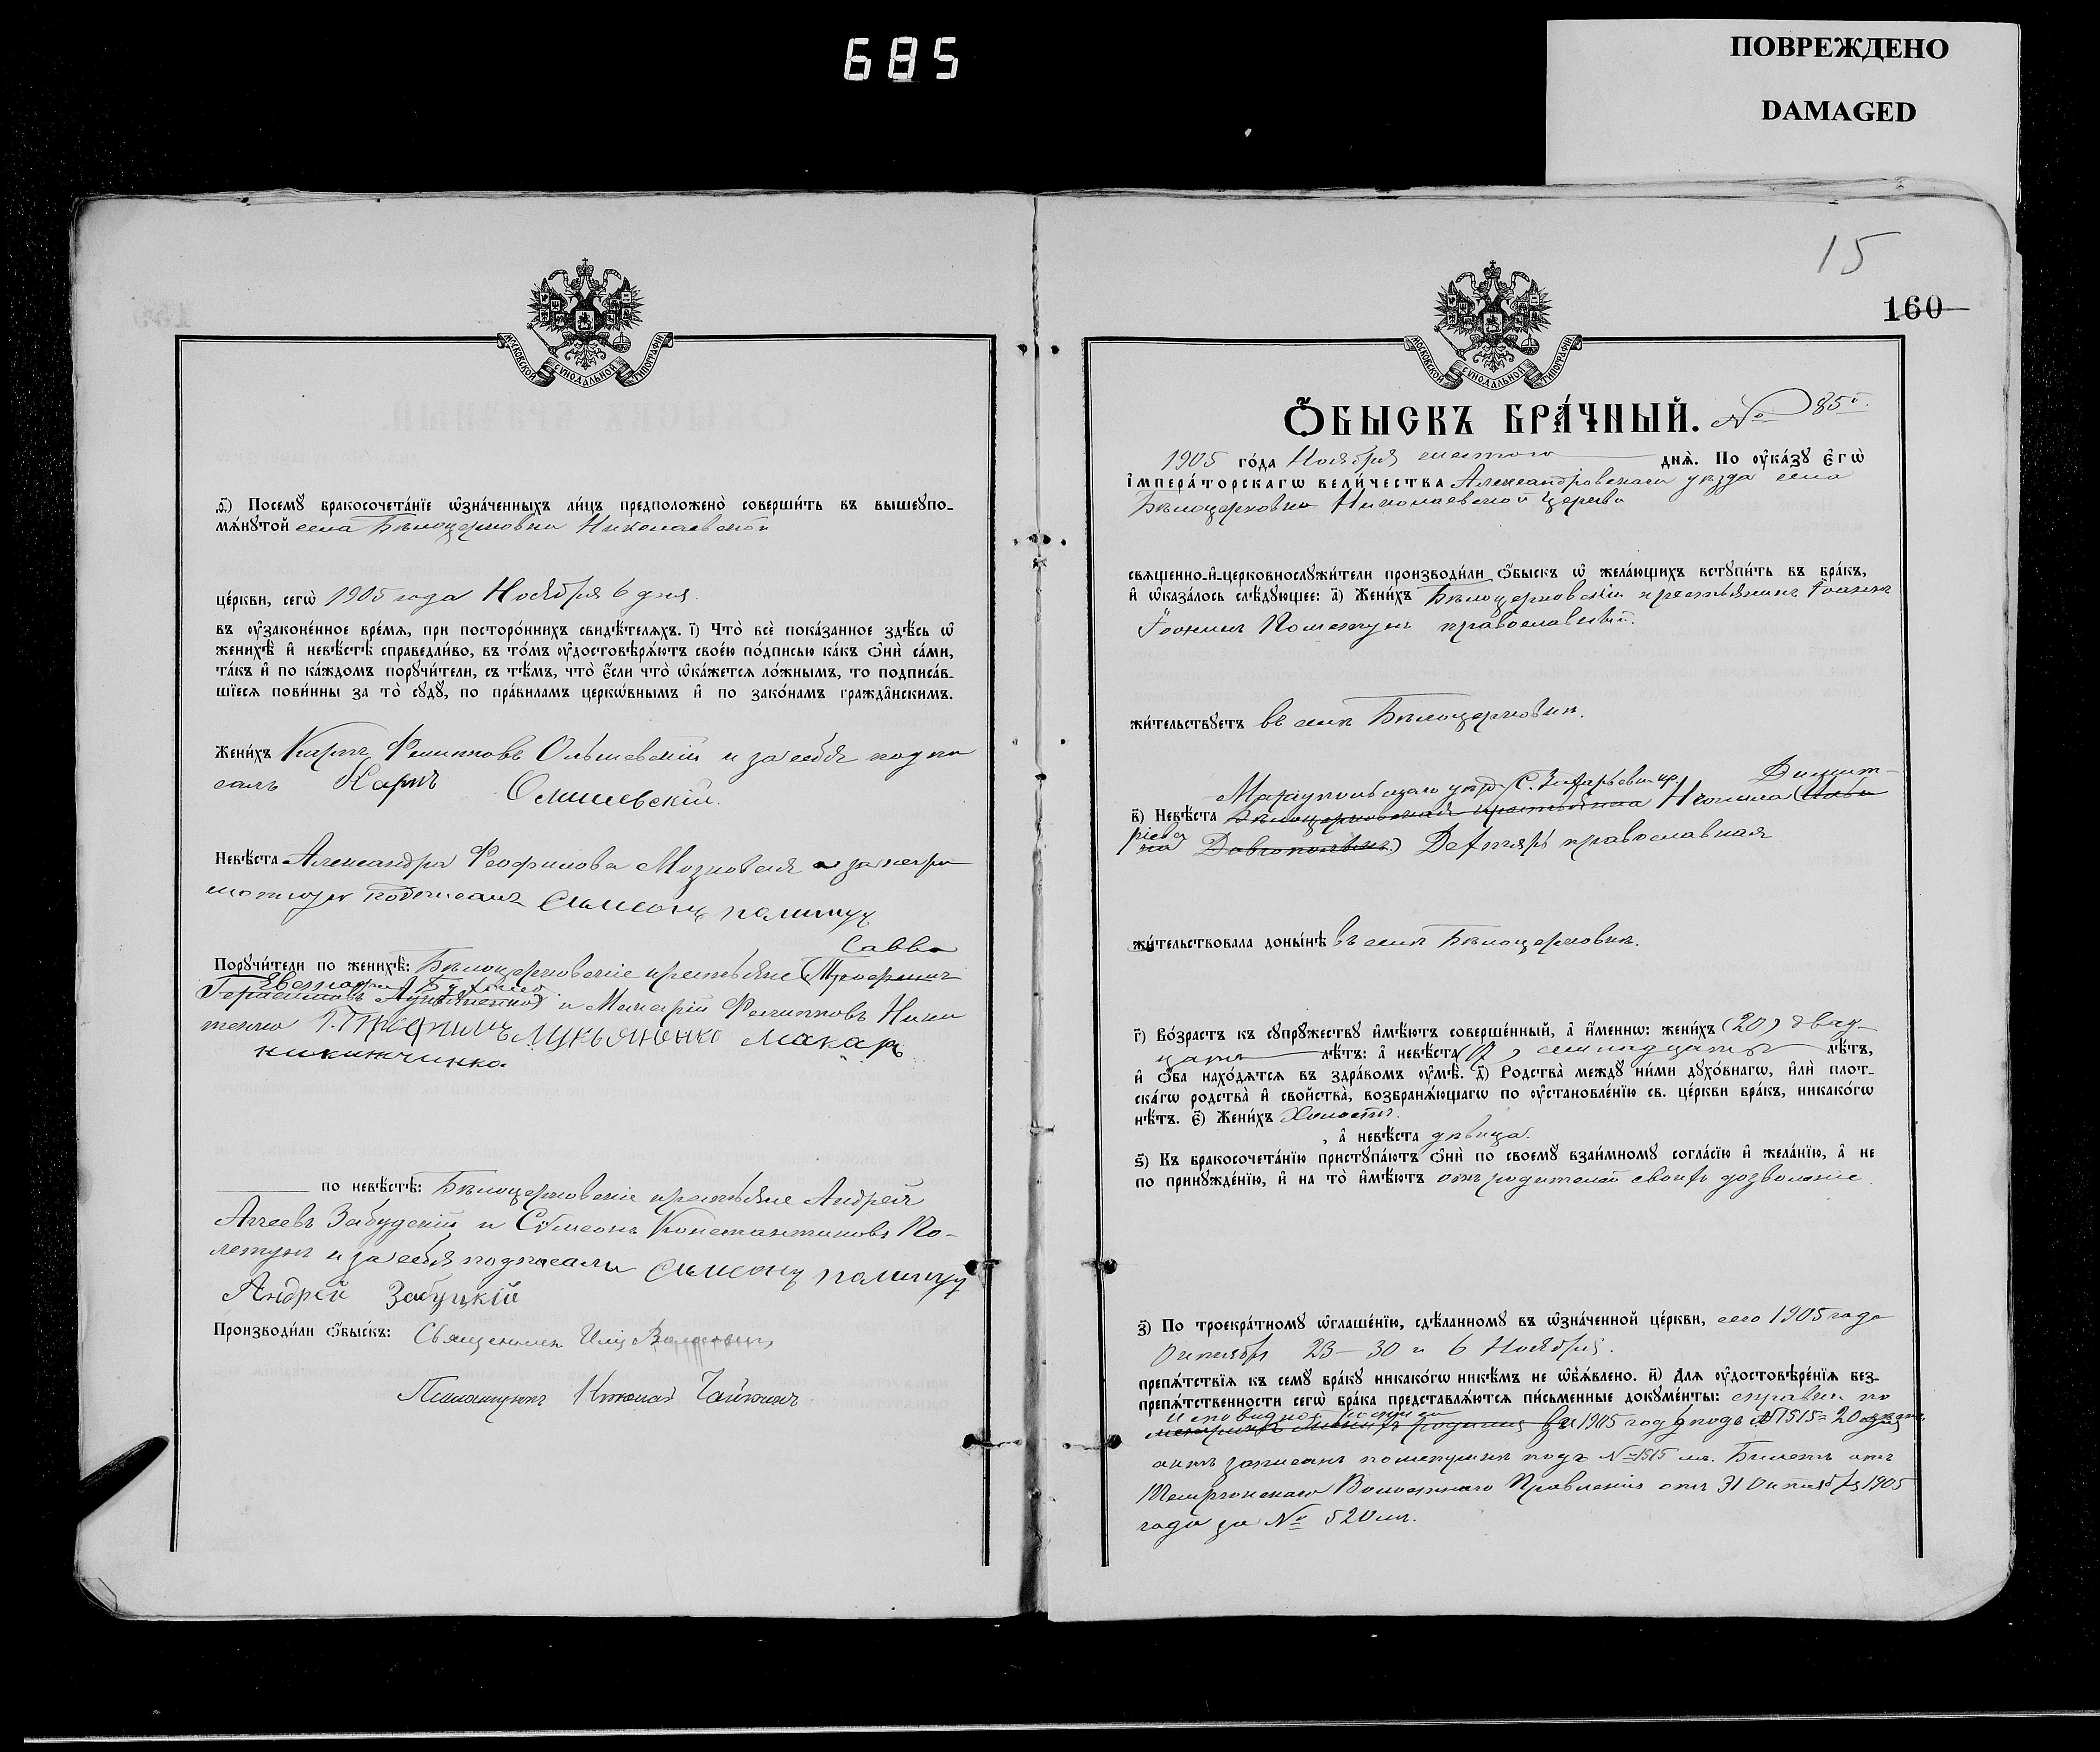 685
ПОВРЕЖДЕНО
DAMAGED
МОСКОВСКОЙ СУНОДАЛЬНОЙ ТИПОГРАФІИ
ѳ҃) Посемꙋ бракосочета́нїе ѡ҆зна́ченныхъ ли́цъ предположено̀ соверши́ть въ вышеꙋпо-
мѧ́нꙋтой села Бѣлоцерковки Николаевской
це́ркви, сегѡ̀ 1905 года Ноября 6 дня.
въ ᲂу҆законе́нное вре́мѧ, при посторо́ннихъ свидѣ́телѧхъ. і҃) Что̀ всѐ пока́занное здѣ́сь ѡ҆
женихѣ̀ и҆ невѣ́стѣ справедли́во, въ то́мъ ᲂу҆достовѣрѧ́ютъ свое́ю по́дписью ка́къ ѻ҆нѝ са́ми,
та́къ и҆ по ка́ждомъ порꙋчи́тели, съ тѣ́мъ, что̀ є҆́сли что̀ ѡ҆ка́жетсѧ ло́жнымъ, то подписа́в-
шїесѧ пови́нны за то̀ сꙋдꙋ̀, по пра́виламъ церко́внымъ и҆ по зако́намъ гражда́нскимъ.
Жени́хъ Карпъ Филипповъ Ольшевскій и за себя подпи
салъ Карпъ Олшевскій.
Невѣ́ста Александра Феофилова Мозговая а за негра
мотную подписалъ Симеонъ
Савва
Порꙋчи́тели по женихѣ̀: Бѣлоцерковскіе крестьяне (Трофимъ
Герасимовъ и Макарій Филипповъ Ники
тенко Т. Трофимъ Лукьяненко Макаръ
по невѣ́стѣ: Бѣлоцерковскіе крестьяне Андрей
Забудскій и Симеонъ Константиновъ По-
летунъ и за себя подписали Симеонъ
Андрей Забуцкій
Производи́ли ѻ҆́быскъ: Священникъ Илія
Псаломщикъ Николай
15
160
МОСКОВСКОЙ СУНОДАЛЬНОЙ ТИПОГРАФІИ
Ѻ҆БЫСКЪ БРА́ЧНЫЙ. № 85й.
1905 го́да Ноября шестого днѧ̀. По ᲂу҆ка́зꙋ є҆гѡ̀
і҆мпера́торскагѡ вели́чества Александровскаго уѣзда села
Бѣлоцерковки Николаевской церкви
свѧщенно-и҆-церковнослꙋжи́тели производи́ли ѻ҆́быскъ ѡ҆ жела́ющихъ встꙋпи́ть въ бра́къ,
и҆ ѡ҆каза́лось слѣ́дꙋющее: а҃) Жени́хъ Бѣлоцерковскій крестьянинъ Іоаннъ
православный.
жи́тельствꙋетъ въ селѣ Бѣлоцерковкѣ.
Димит-
Маріупольскаго уѣзда С. кр.
в҃) Невѣ́ста Бѣлоцерковская крестьянка Неонила
ріева Дегтярь православная
жи́тельствовала доны́нѣ въ селѣ Бѣлоцерковкѣ.
г҃) Во́зрастъ къ сꙋпрꙋжествꙋ и҆мѣ́ютъ соверше́нный, а҆ и҆́меннѡ: жени́хъ (20) двад-
цати лѣ́тъ: а҆ невѣ́ста (17) семнадцати лѣ́тъ,
и҆ ѻ҆́ба нахо́дѧтсѧ въ здра́вомъ ᲂу҆мѣ̀. д҃) Родства̀ междꙋ ни́ми дꙋхо́внагѡ, и҆лѝ плот-
ска́гѡ родства̀ и҆ сво́йства, возбранѧ́ющагѡ по ᲂу҆становле́нїю св. це́ркви бра́къ, никако́гѡ
нѣ́тъ. є҃) Жени́хъ Холостъ.
, а҆ невѣ́ста дѣвица.
ѕ҃) Къ бракосочета́нїю пристꙋпа́ютъ ѻ҆нѝ по своемꙋ взаи́мномꙋ согла́сїю и҆ жела́нїю, а҆ не
по принꙋжде́нїю, и҆ на то̀ и҆мѣ́ютъ отъ родителей своихъ дозволеніе.
з҃) По троекра́тномꙋ ѡ҆глаше́нїю, сдѣ́ланномꙋ въ ѡ҆зна́ченной це́ркви, сего 1905 года
Октября 23 – 30 и 6 Ноября.
препѧ́тствїѧ къ семꙋ бра́кꙋ никако́гѡ никѣ́мъ не ѡ҆б̾ѧ́влено. и҃) Длѧ ᲂу҆достовѣре́нїѧ без-
препѧ́тственности сегѡ̀ бра́ка представлѧ́ютсѧ пи́сьменные докꙋме́нты: справка по
1905 годъ подъ №1515
записанъ подъ №1515 мъ. Билетъ отъ
Волостного Правленія отъ 31 Октября 1905
года за № 520 мъ.